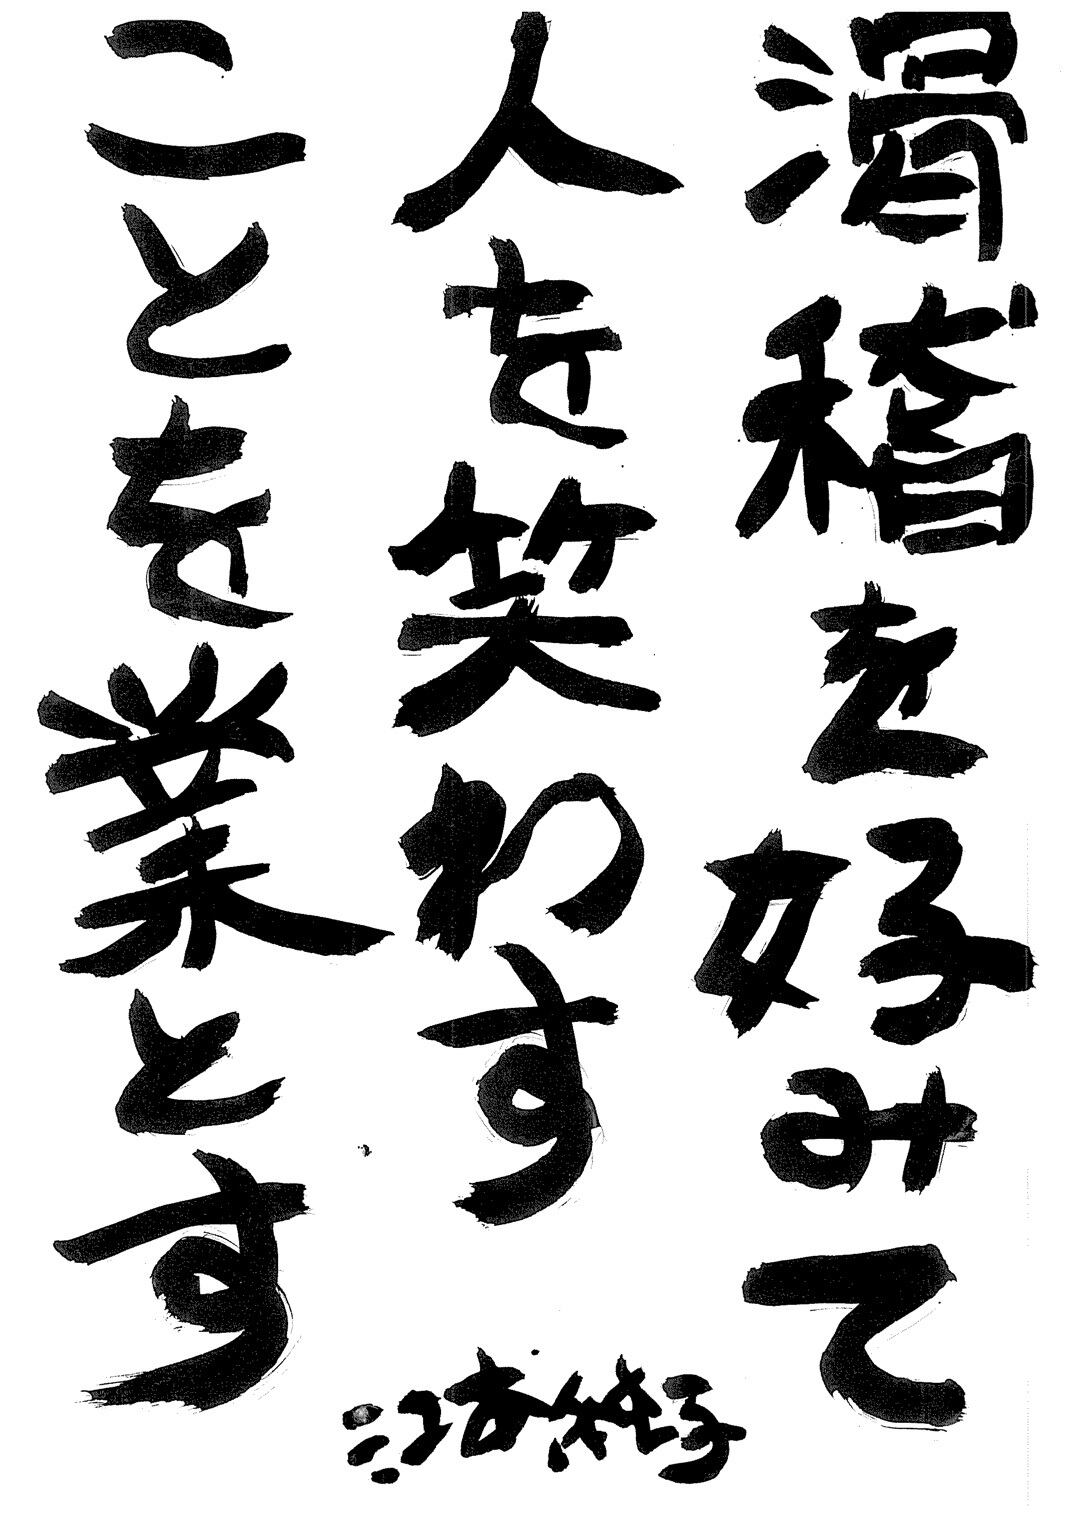 滑稽を好みて
人を笑わす
ことを業とす